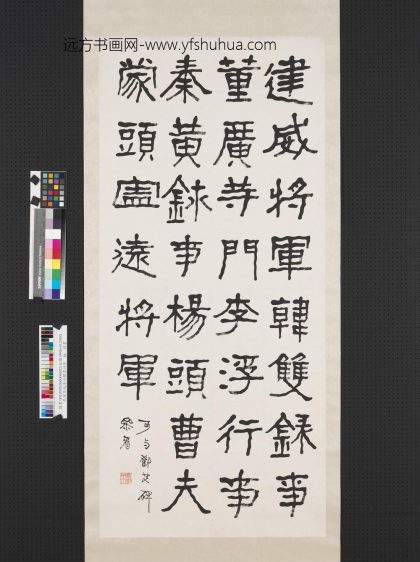 远方书画网-www.yfshuhua.com
建威將軍韓雙錄事
董廣寺門李浮行事
秦黃錄事楊頭曹夫
蒙頭寍遠將軍
可与鄧艾碑
叅看